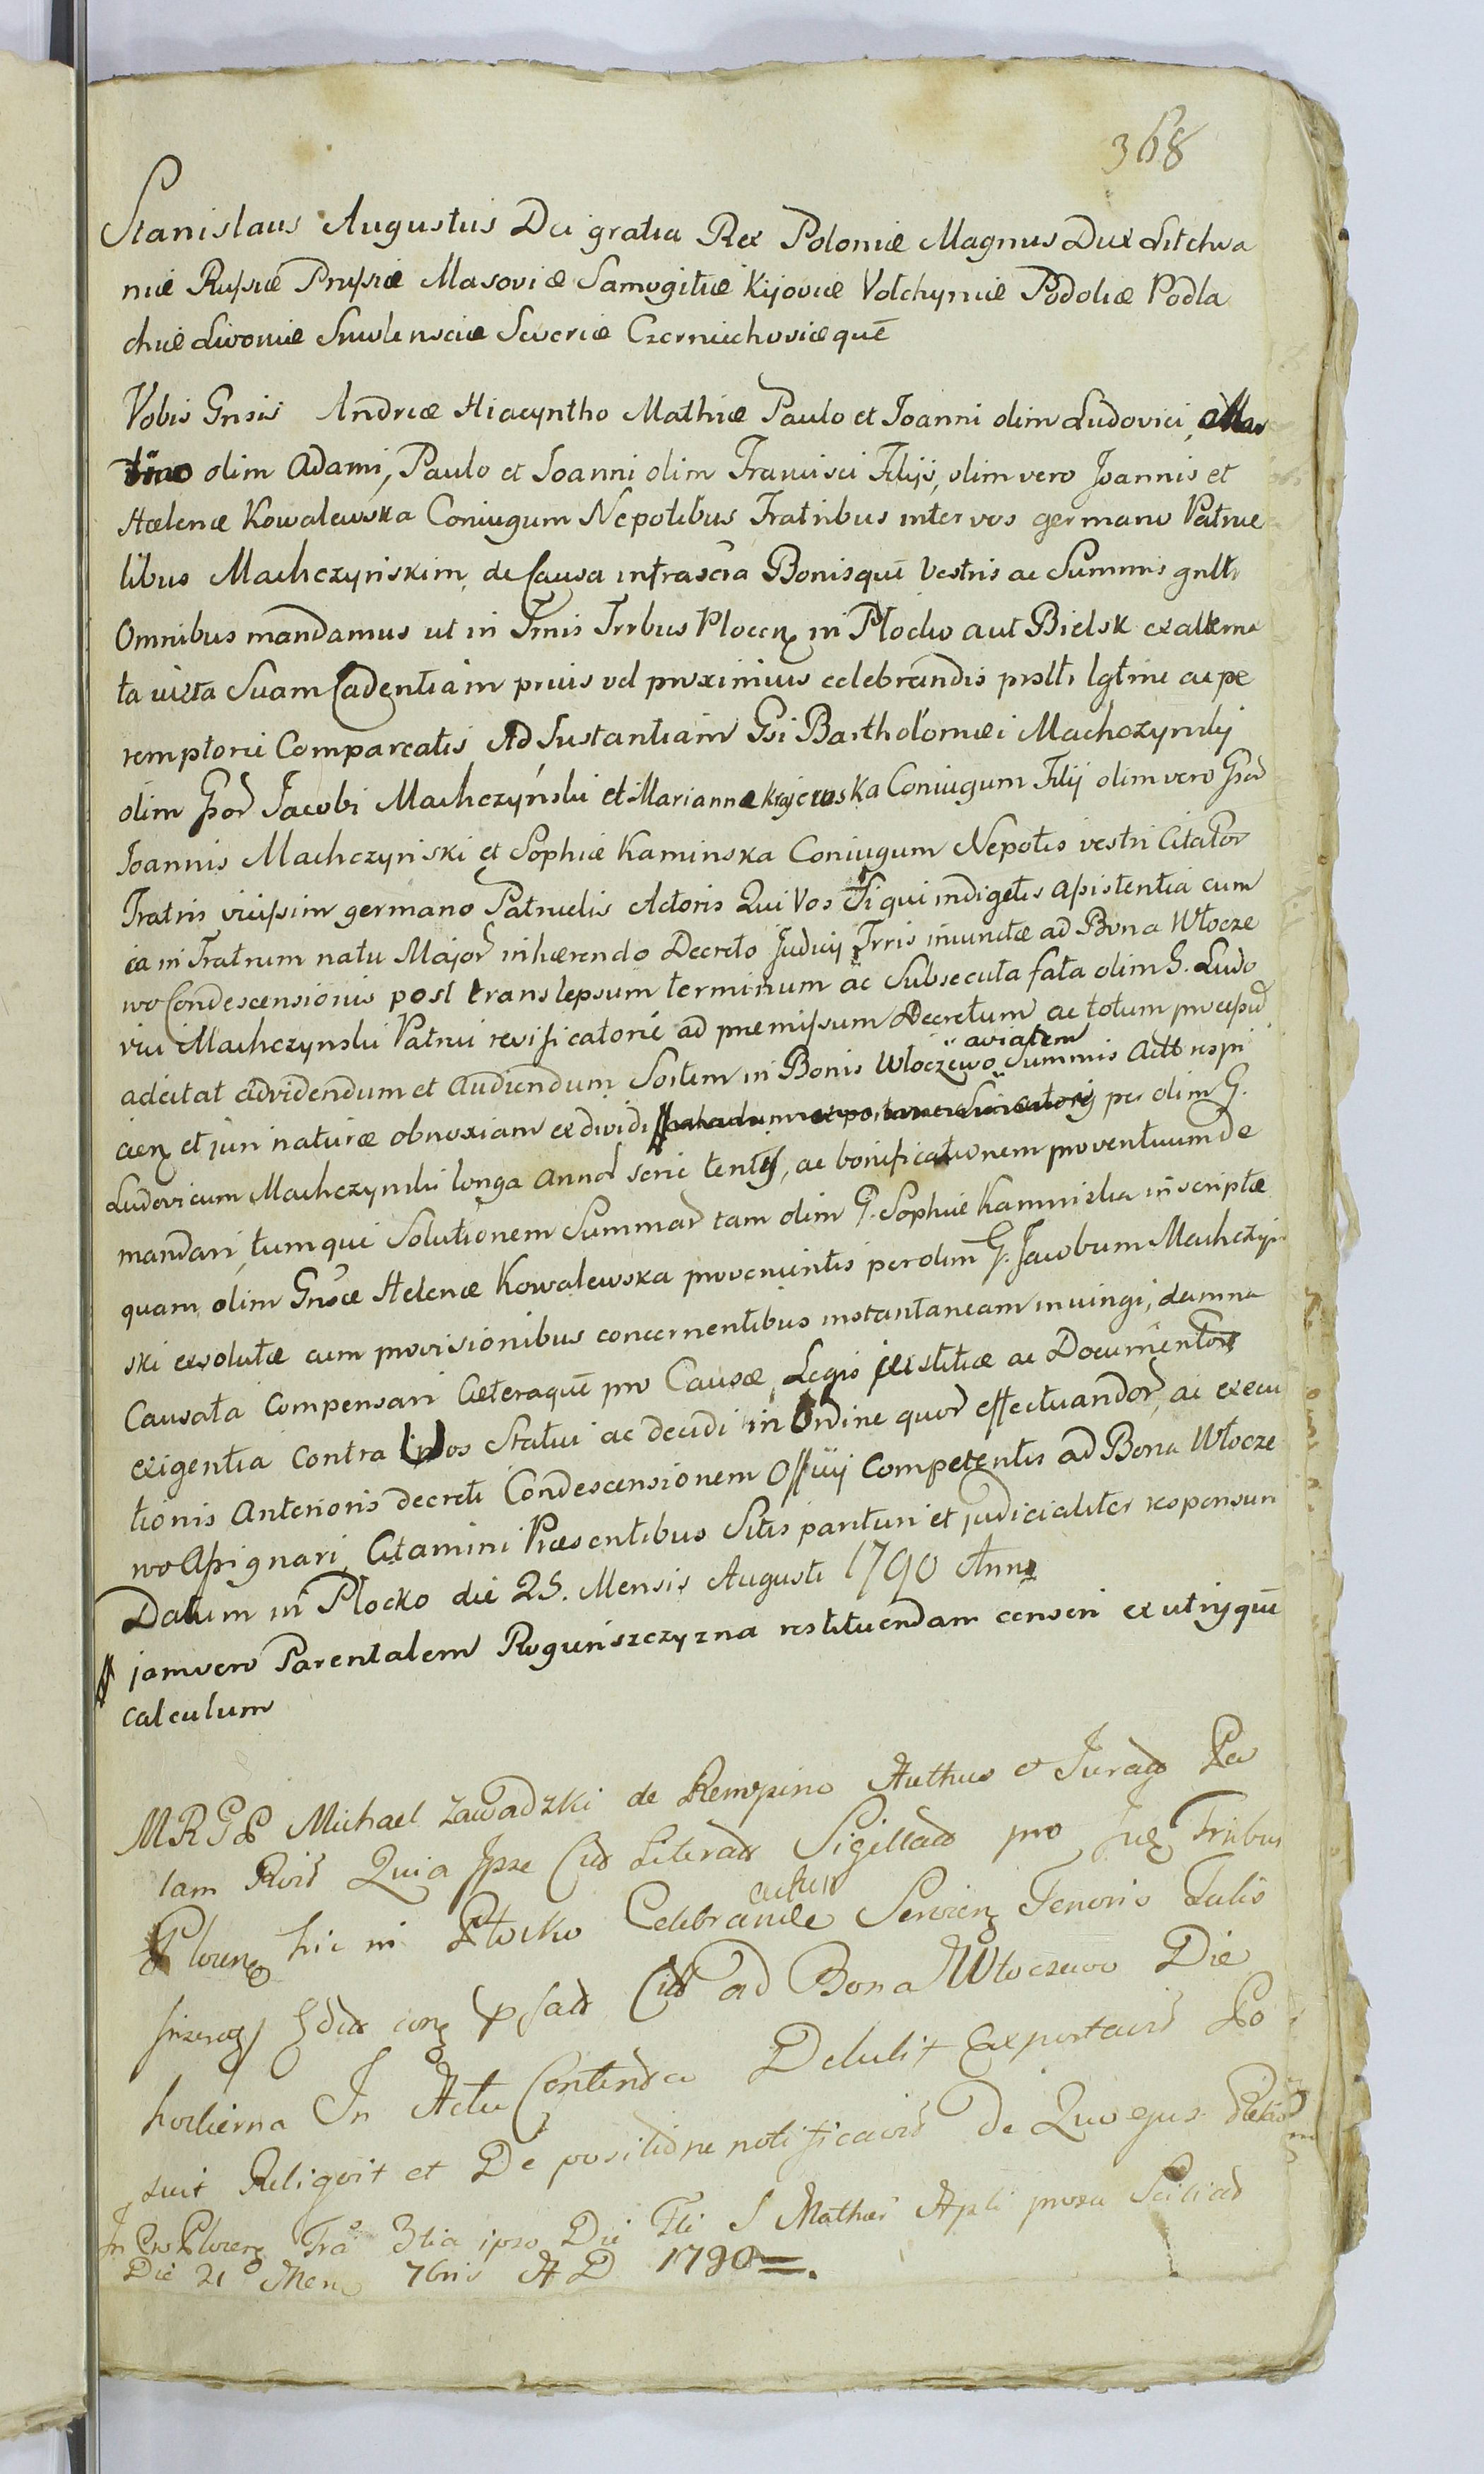 368
Stanislaus Augustus Dei gratia Rex Poloniæ Magnus Dux Litchva
niæ Russiæ Prussiæ Masoviæ Samogitiæ Kijoviæ Volchyniæ Podoliæ Podla
chiæ Livoniæ Smolensciæ Severiæ Czerniechoviæquē
Vobis Gnsis Andreæ Hiacyntho Mathiæ Paulo et Joanni olim Ludovici, Mar
tino olim Adami, Paulo et Joanni olim Francisci Filijs, olim vero Joannis et
Hælenæ Kowalewska Coniugum Nepotibus Fratribus inter vos germano Patrue
libus Machczyńskim, de Causa infrascra Bonisquē Vestris ac Summis gnltr
Omnibus mandamus ut in Trnis Trrbus Plocen in Płocko aut Bielsk ex alterna
ta juxta Suam Cadentiam prius vel proximius celebrandis prsltr lgtme ac pe
remptorie Compareatis Ad Instantiam Gsi Bartholomæi Machczynskj
olim Gsor Jacobi Machczyński et Mariannæ Krajewska Coniugum Filij olim vero Gsor
Joannis Machczyński et Sophiæ Kaminska Coniugum Nepotis vestri Citator
Fratris vicissim germano Patruelis Actoris Qui Vos Si qui indigetis Assistentia cum
ea in Fratrum natu Major inhærendo Decreto Judicij Trris iniunctæ ad Bona Włocze
wo Condescensionis post translapsum terminum ac Subsecuta fata olim G. Ludo
vici Machczynski Patrui revificatorie ad præmissum Decretum ac totum processū
adcitat Advidendum et Audiendum Sortem in Bonis Włoczewo aviatem Summis Actto respi
cien et juri naturæ obnoxiam exdividi per olim G.
Ludovicum Machczynski longa Annor serie tentis, ac bonificationem proventuum de
mandari, tumqui Solutionem Summar tam olim G. Sophiæ Kaminska inscriptæ
quam olim Gnsæ Helenæ Kowalewska provenientis per olim G. Jacobum Machczyń
ski exsolutæ cum provisionibus concernentibus instantaneam iniungi, damna
Causata Compensari Cæteraquē pro Causæ, Legis justitiæ ac Documentor
exigentia Contra Vos Statui ac decidi in Ordine quor effectuandor, ac execu
tionis Anterioris decreti Condescensionem Officij Competentis ad Bona Włocze
wo Assignari, Citamini Præsentibus Sitis parituri et judicialiter responsuri
Datum in Płocko die 25. Mensis Augusti 1790 Anno
jamvero Parentalem Roguńszczyzna restituendam censeri ex utrijquē
calculum
MRGP Michael Zawadzki de Rempino Authus et Jurad Pa
lam Rvit Quia Ipse Cit Literad Sigillad pro Jud Trribus
Plocen hic in Płocko Celebran Servien Tenoris Talis
ad Bona Włoczewo Die
hodierna In Actu Contenta Detulit Exportavit Po
suit Religvit et De positione notificavit De Quo ejus
In Plocen Tra 3tia ipso Die Fti S Mathæi Apli
Die 21 Men 7bris A D 1790.